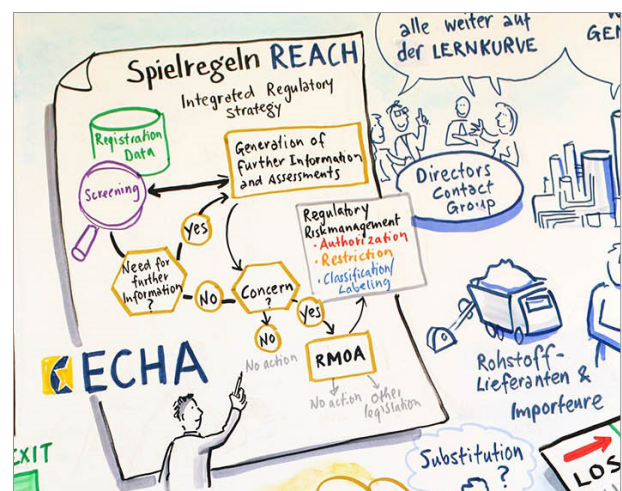 Spielregeln REACH
Integrated Regulatory
Strategy
Registration
Data
Screening
Generation of
further Information
and Assessments
Yes
Need for
further
Information
?
No
Concern
?
Yes
No
No action
RMOA
No action
other
legislation
Regulatory
Riskmanagement
• Authorization
• Restriction
• Classification/
Labeling
ECHA
alle weiter auf
der LERNKURVE
Directors
Contact
Group
Rohstoff-
Lieferanten &
Importeure
Substitution
?
EXIT
LOS
GEN